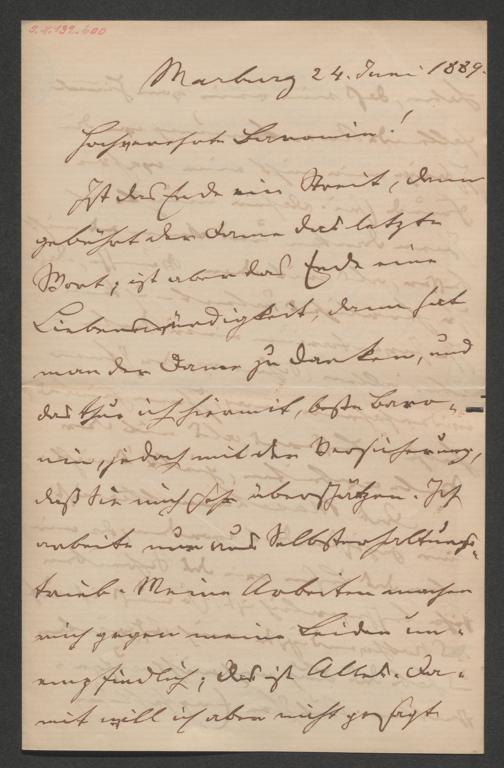 I.N.139.600
Marburg 24. Juni 1889.
Hochverehrte Baronin!
Ist das Ende ein Streit, dann
gebührt der Dame das letzte
Wort; ist aber das Ende eine
Liebenswürdigkeit, dann hat
man der Dame zu danken, und
das thue ich hiermit, beste Baro-
nin, jedoch mit der Versicherung,
daß Sie mich sehr überschätzen. Ich
arbeite nur aus Selbsterhaltungs-
trieb. Meine Arbeiten machen
mich gegen meine Leiden un-
empfindlich; das ist Alles. Da-
mit will ich aber nicht gesagt